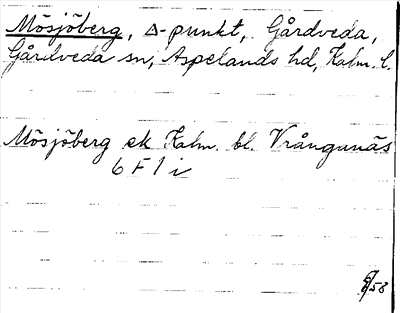 Mösjöberg, Δ-punkt, Gårdveda,
Gårdveda sn, Aspelands hd, Kalm. l.
Mösjöberg ek Kalm. bl. Vrångunäs
6 F 1 i
/58